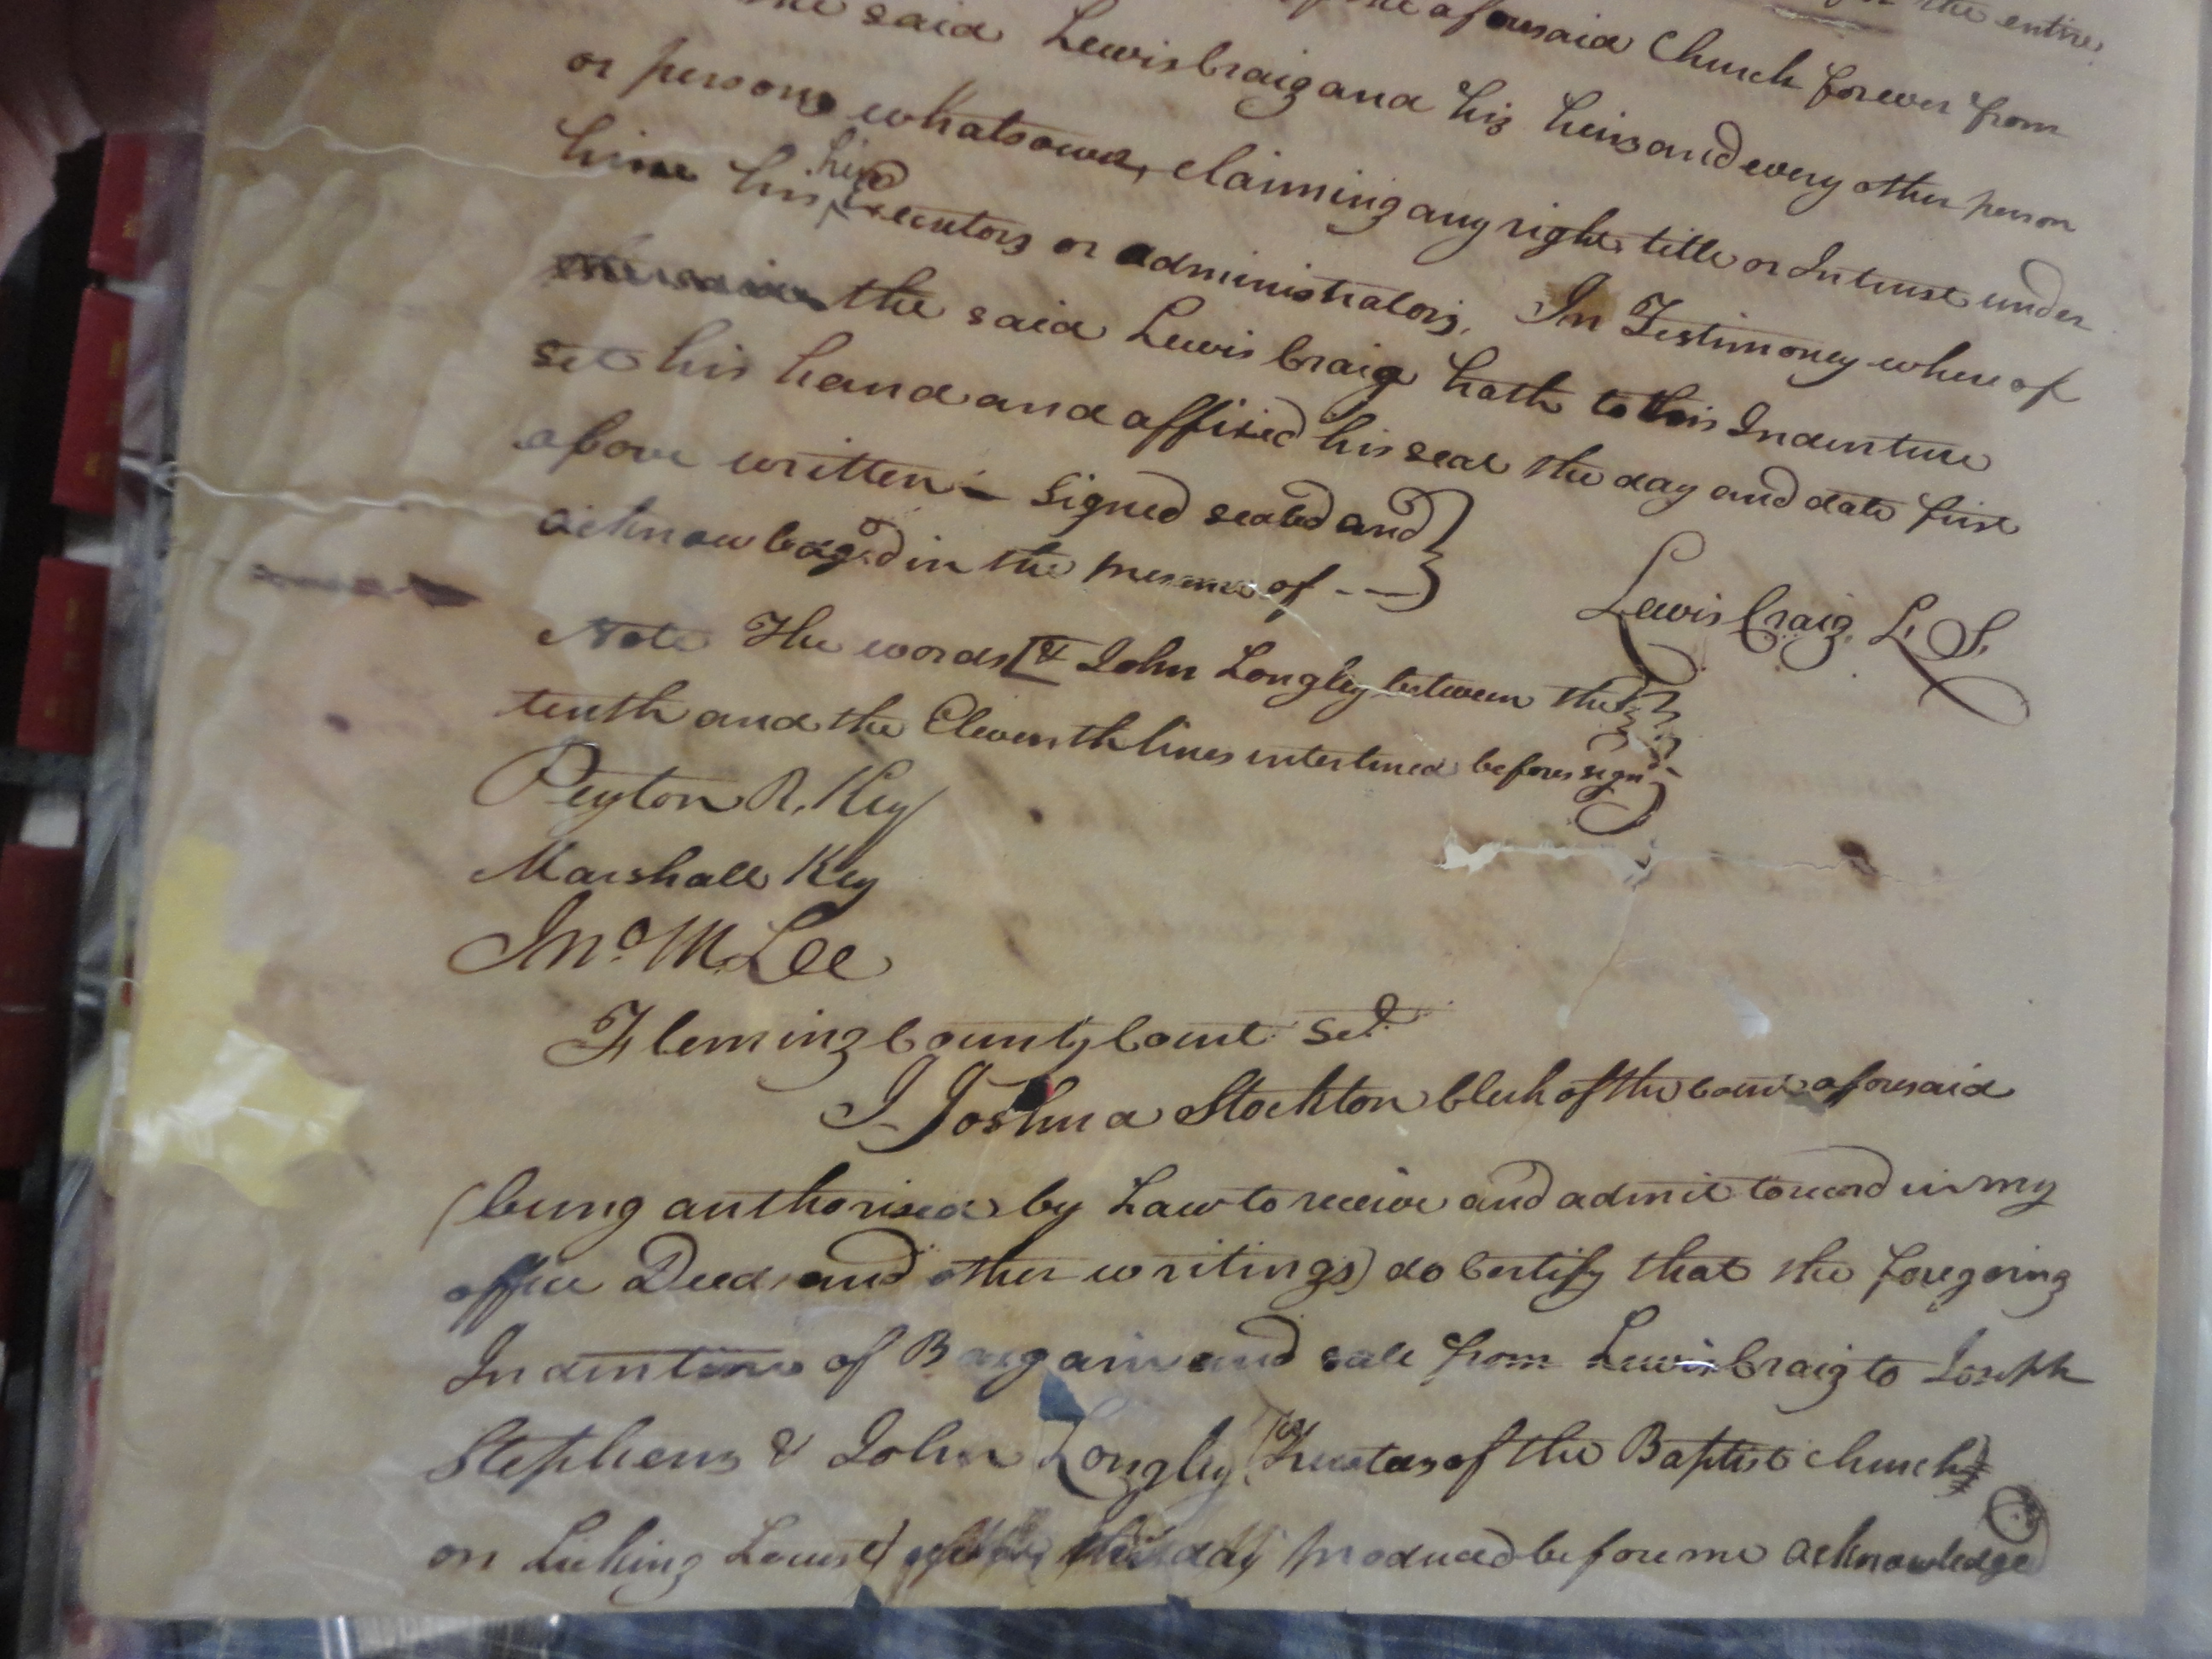 the entire
the said of the aforesaid Church forever from
Lewis Craig and his heirs and every other person
or persons whatsoever, claiming any right title or Intrust under
him his heirs Executors or administrators. In Testimoney where of
the said Lewis Craig hath to this Indenture
set his hand and affixed his seal the day and date first
above written - Signed sealed and
acknowledged in the presence of - -
Lewis Craig L. S.
Note The words [& John Longley between the
tenth and the Eleventh lines interlined before sign'd
Peyton R. Key
Marshall Key
Jno. M. Lee
Fleming County Court Sct.
I Joshua Stockton Clerk of the Court aforesaid
(being authorised by Law to receive and admit to record in my
office Deeds and other writings) do Certify that the foregoing
Indenture of Bargain and sale from Lewis Craig to Joseph
Stephens & John Longley (trustees of the Baptist church
on Licking Locust) this day produced before me acknowledged